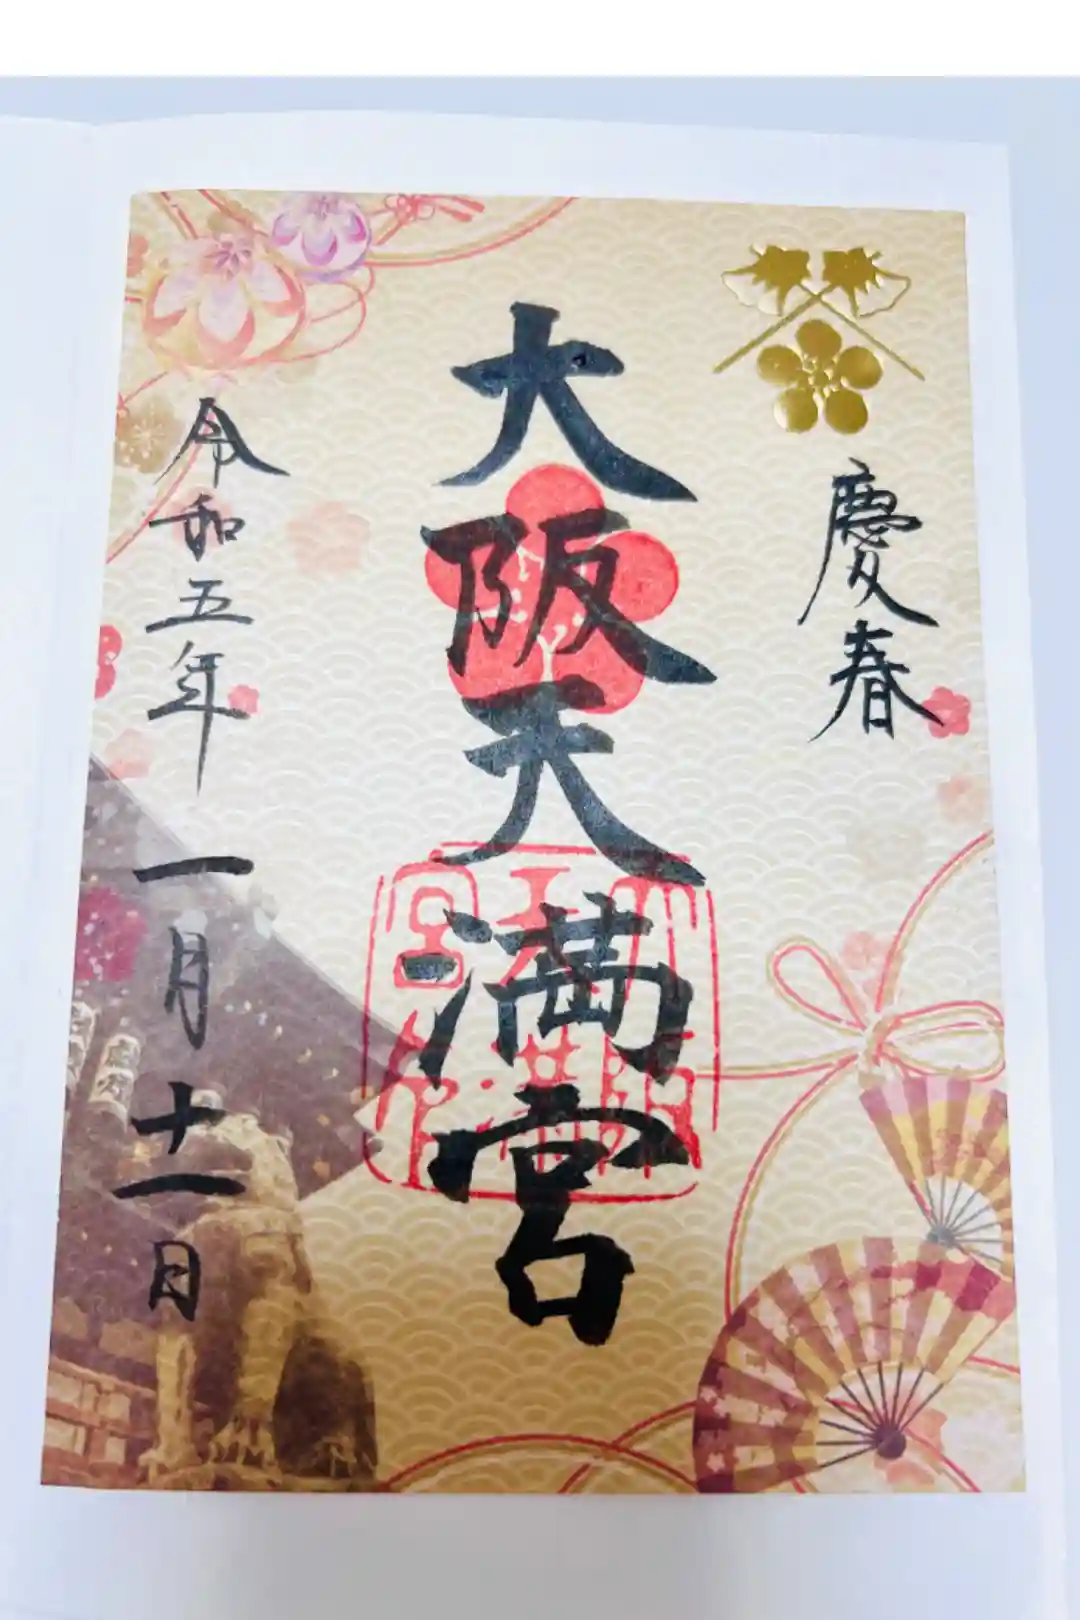 慶春
大阪天満宮
令和五年一月十一日